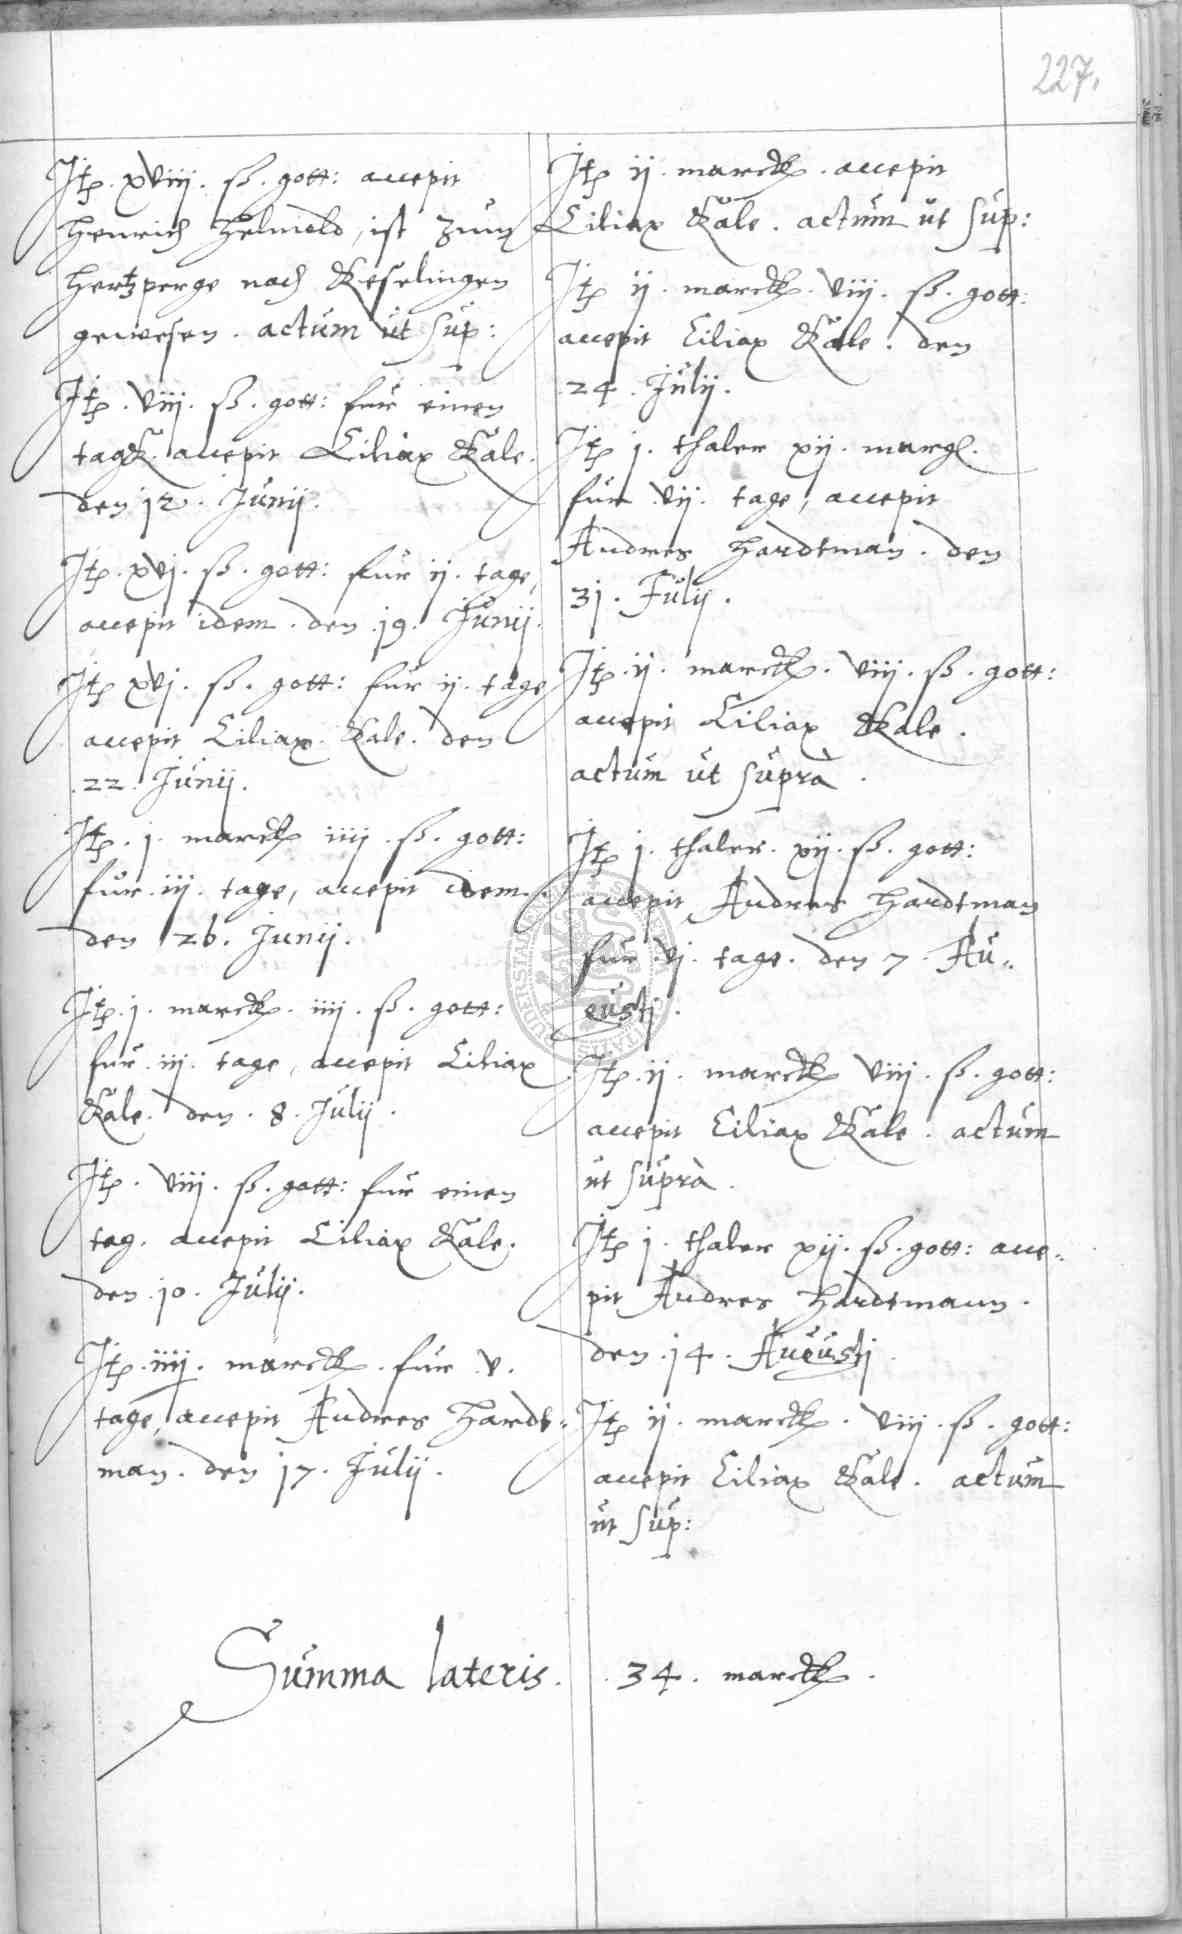 227.
Itp. xviij. ß. gott: accepit
Henrich Helmold, ist zum
Hertzperge nach Keselingen
gewesen. actum ut sup:
Itp. viij. ß. gott: fur einen
tagk. accepit Ciliax Kale.
den 12. Junij.
Itp. xvj. ß. gott: fur ij. tage,
accepit idem. den 19. Junij.
Itp xvj. ß. gott: fur ij. tage
accepit Ciliax Kale. den
22. Junij.
Itp. j. marck iiij. ß. gott:
fur iij. tage, accepit idem.
den 26. Junij.
Itp. j. marck. iiij. ß. gott:
fur iij. tage, accepit Ciliax
Kale. den 8. Julij.
Itp. viij. ß. gott: fur einen
tag. accepit Ciliax Kale.
den 10. Julij.
Itp. iiij. marck. fur v.
tage, accepit Andres Hardt-
man. den 17. Julij.
Itp ij. marck. accepit
Ciliax Kale. actum ut sup:
Itp ij. marck. viij. ß. gott:
accepit Ciliax Kale. den
24. Julij.
Itp j. thaler xij. margl.
fur vij. tage, accepit
Andres Hardtman. den
31. Julij.
Itp. ij. marck. viij. ß. gott:
accepit Ciliax Kale.
actum ut suprà.
Itp j. thaler. xij. ß. gott:
accepit Andres Hardtman
fur vj. tage. den 7. Au-
gustj.
Itp. ij. marck viij. ß. gott:
accepit Ciliax Kale. actum
ut suprà.
Itp j. thaler xij. ß. gott: acce-
pit Andres Hardtmann.
den 14. Augustj
Itp ij. marck. viij. ß. gott:
accepit Ciliax Kale. actum
ut sup:
Summa lateris. 34. marck.